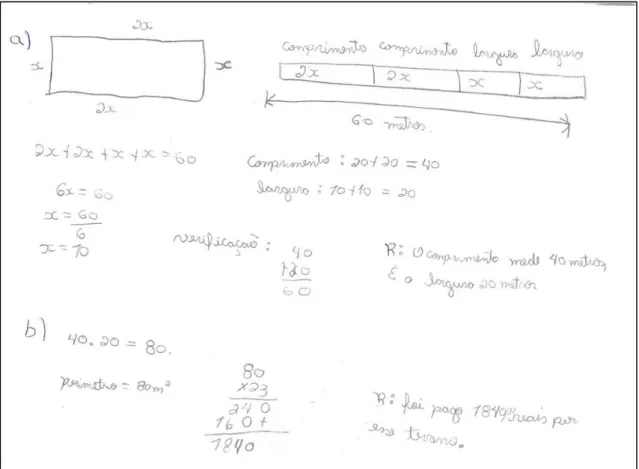 a)
2x
x
x
2x
comprimento comprimento largura largura
2x 2x x x
60 metros.
2x+2x+x+x=60
6x=60
x=60
6
x=10
Comprimento: 20+20=40
largura: 10+10=20
verificação:
40
+20
60
R: O comprimento mede 40 metros,
E a largura 20 metros
b)
40.20=80.
perimetro=80m²
80
x23
240
160+
1840
R: foi pago reais por
esse